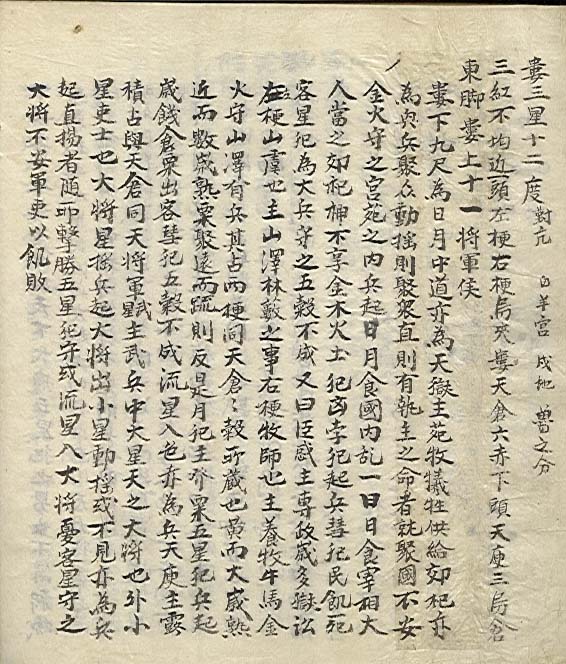 婁三星十二度 對亢 白羊宮 戌地 魯之分
三紅不均近頭左梗右梗烏夾婁天倉六赤下頭天庾三烏倉
東脚婁上十一將軍侯
婁下九尺為日月中道亦為天獄主苑牧犧牲供給郊祀亦
為興兵聚眾動摇則聚眾直則有執主之命者就聚國不安
金火守之宮苑之内兵起日月食國内乱一曰日食宰相大
人當之郊祀神不享金木火土犯凶孛犯起兵彗犯民飢死
客星犯為大兵守之五穀不成又曰臣惑主專政歲多獄訟
左梗山虞也主山澤林藪之事右梗牧師也主養牧牛馬金
火守山澤有兵其占两梗同天倉〻穀所藏也黄而大歲熟
近而數歲熟粟聚遠而疏則反是月犯主發粟五星犯兵起
歲饑倉粟出客彗犯五穀不成流星入色亦為兵天庾主露
積占與天倉同天將軍主武兵中大星天之大將也外小
星吏士也大將星摇兵起大將出小星動摇或不見亦為兵
起直揚者随所擊勝五星犯守或流星入大將憂客星守之
大將不安軍吏以飢敗